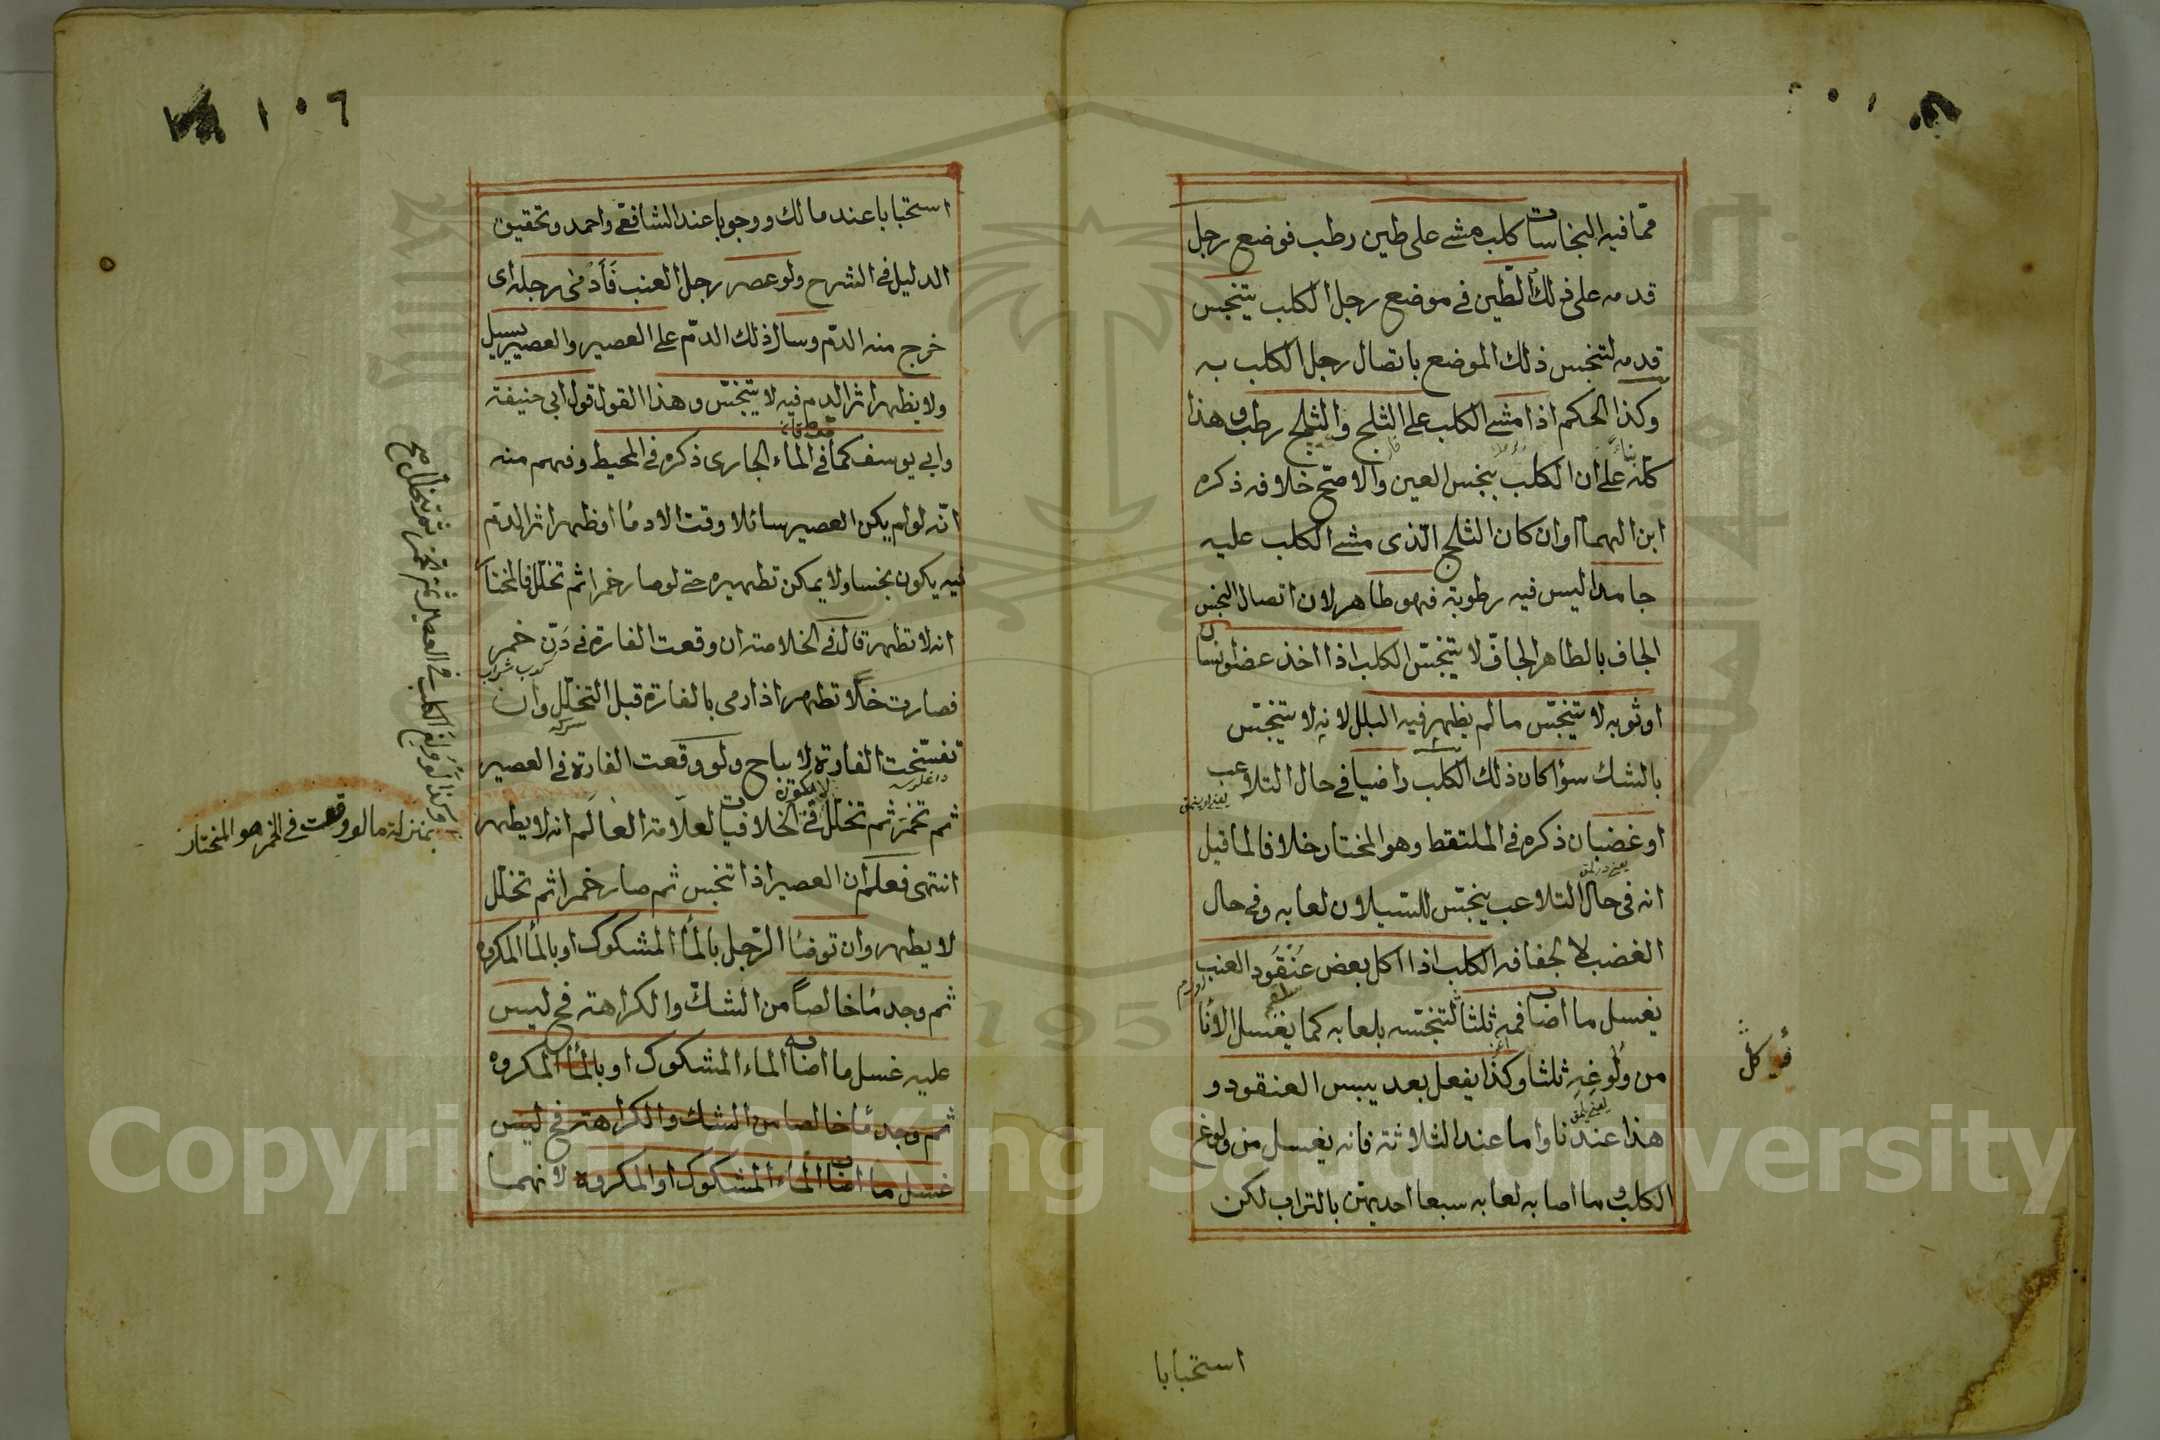 مما فيه النجاسات كلب مشى على طين رطب فوضع رجل
قدمه على ذلك الطين في موضع رجل الكلب يتنجس
قدمه لتنجس ذلك الموضع باتصال رجل الكلب به
وكذا الحكم اذا مشى الكلب على الثلج والثلج رطب وهذا
كله بناء على ان الكلب نجس العين والاصح خلافه ذكره
ابن الهمام وان كان الثلج الذى مشى الكلب عليه
جامدا ليس فيه رطوبة فهو طاهر لان اتصال النجس
الجاف بالطاهر الجاف لا يتنجس الكلب اذا اخذ عضو انسان
او ثوبه لا يتنجس ما لم يظهر فيه البلل لانه لا يتنجس
بالشك سواء كان ذلك الكلب راضيا في حال التلاعب
او غضبان ذكره في الملتقط وهو المختار خلافا لما قيل
انه في حال التلاعب ينجس للسيلان لعابه وفي حال
الغضب لا لجفافه الكلب اذا اكل بعض عنقود العنب
يغسل ما اصاب فمه ثلثا لتنجسه بلعابه كما يغسل الاناء
من ولوغه ثلثا وكذا يفعل بعد يبس العنقود و
هذا عندنا واما عند الثلاثة فانه يغسل من ولوغ
الكلب وما اصابه لعابه سبعا احديهن بالتراب لكن
استحبابا
١٠٦
استحبابا عند مالك ووجوبا عند الشافعى واحمد وتحقيق
الدليل في الشرح ولو عصر رجل العنب فأدمى رجله اى
خرج منه الدم وسال ذلك الدم على العصير والعصير يسيل
ولا يظهر اثر الدم فيه لا يتنجس وهذا القول قول ابي حنيفة
وابي يوسف كما في الماء الجارى ذكره في المحيط وفهم منه
انه لو لم يكن العصير سائلا وقت الادماء او ظهر اثر الدم
فيه يكون نجسا ولا يمكن تطهيره حتى لو صار خمرا ثم تخلل فالمختار
انه لا تطهر قال في الخلاصة ان وقعت الفارة في دن خمر
فصارت خلا تطهر اذا رمى بالفارة قبل التخلل وان
تفسخت الفارة لا يباح ولو وقعت الفارة في العصير
ثم تخمر ثم تخلل لا يكون في الخلافيات لعلامة العالم انه لا يطهر
بمنزلة ما لو وقعت في الخمر هو المختار
انتهى فعلم ان العصير اذا تنجس ثم صار خمرا ثم تخلل
لا يطهر وان توضأ الرجل بالماء المشكوك او بالماء المكروه
ثم وجد ماء خالصا من الشك والكراهة فح ليس
عليه غسل ما اصابه الماء المشكوك او بالماء المكروه
ثم وجد ماء خالصا من الشك والكراهة فح ليس
غسل ما اصاب الماء المشكوك او المكروه لانهما
Copyright © King Saud University